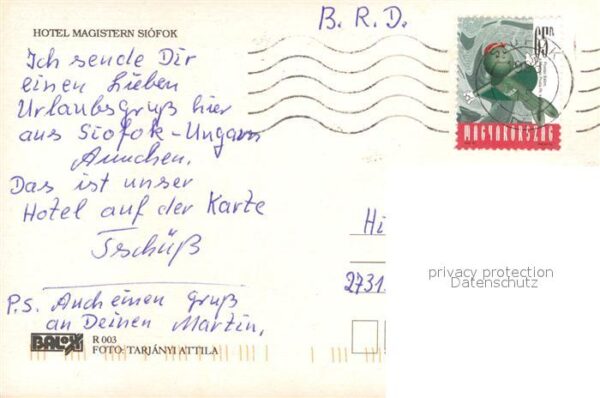 B. R. D.
HOTEL MAGISTERN SIÓFOK
Ich sende Dir
einen lieben
Urlaubsgruß hier
aus Siofok-Ungarn
Ännchen.
Das ist unser
Hotel auf der Karte
Tschüß
P.S. Auch einen Gruß
an Deinen Martin.
BALOX
R 003
FOTO: TARJÁNYI ATTILA
65 Ft
MAGYARORSZÁG
Hi
2731
privacy protection
Datenschutz